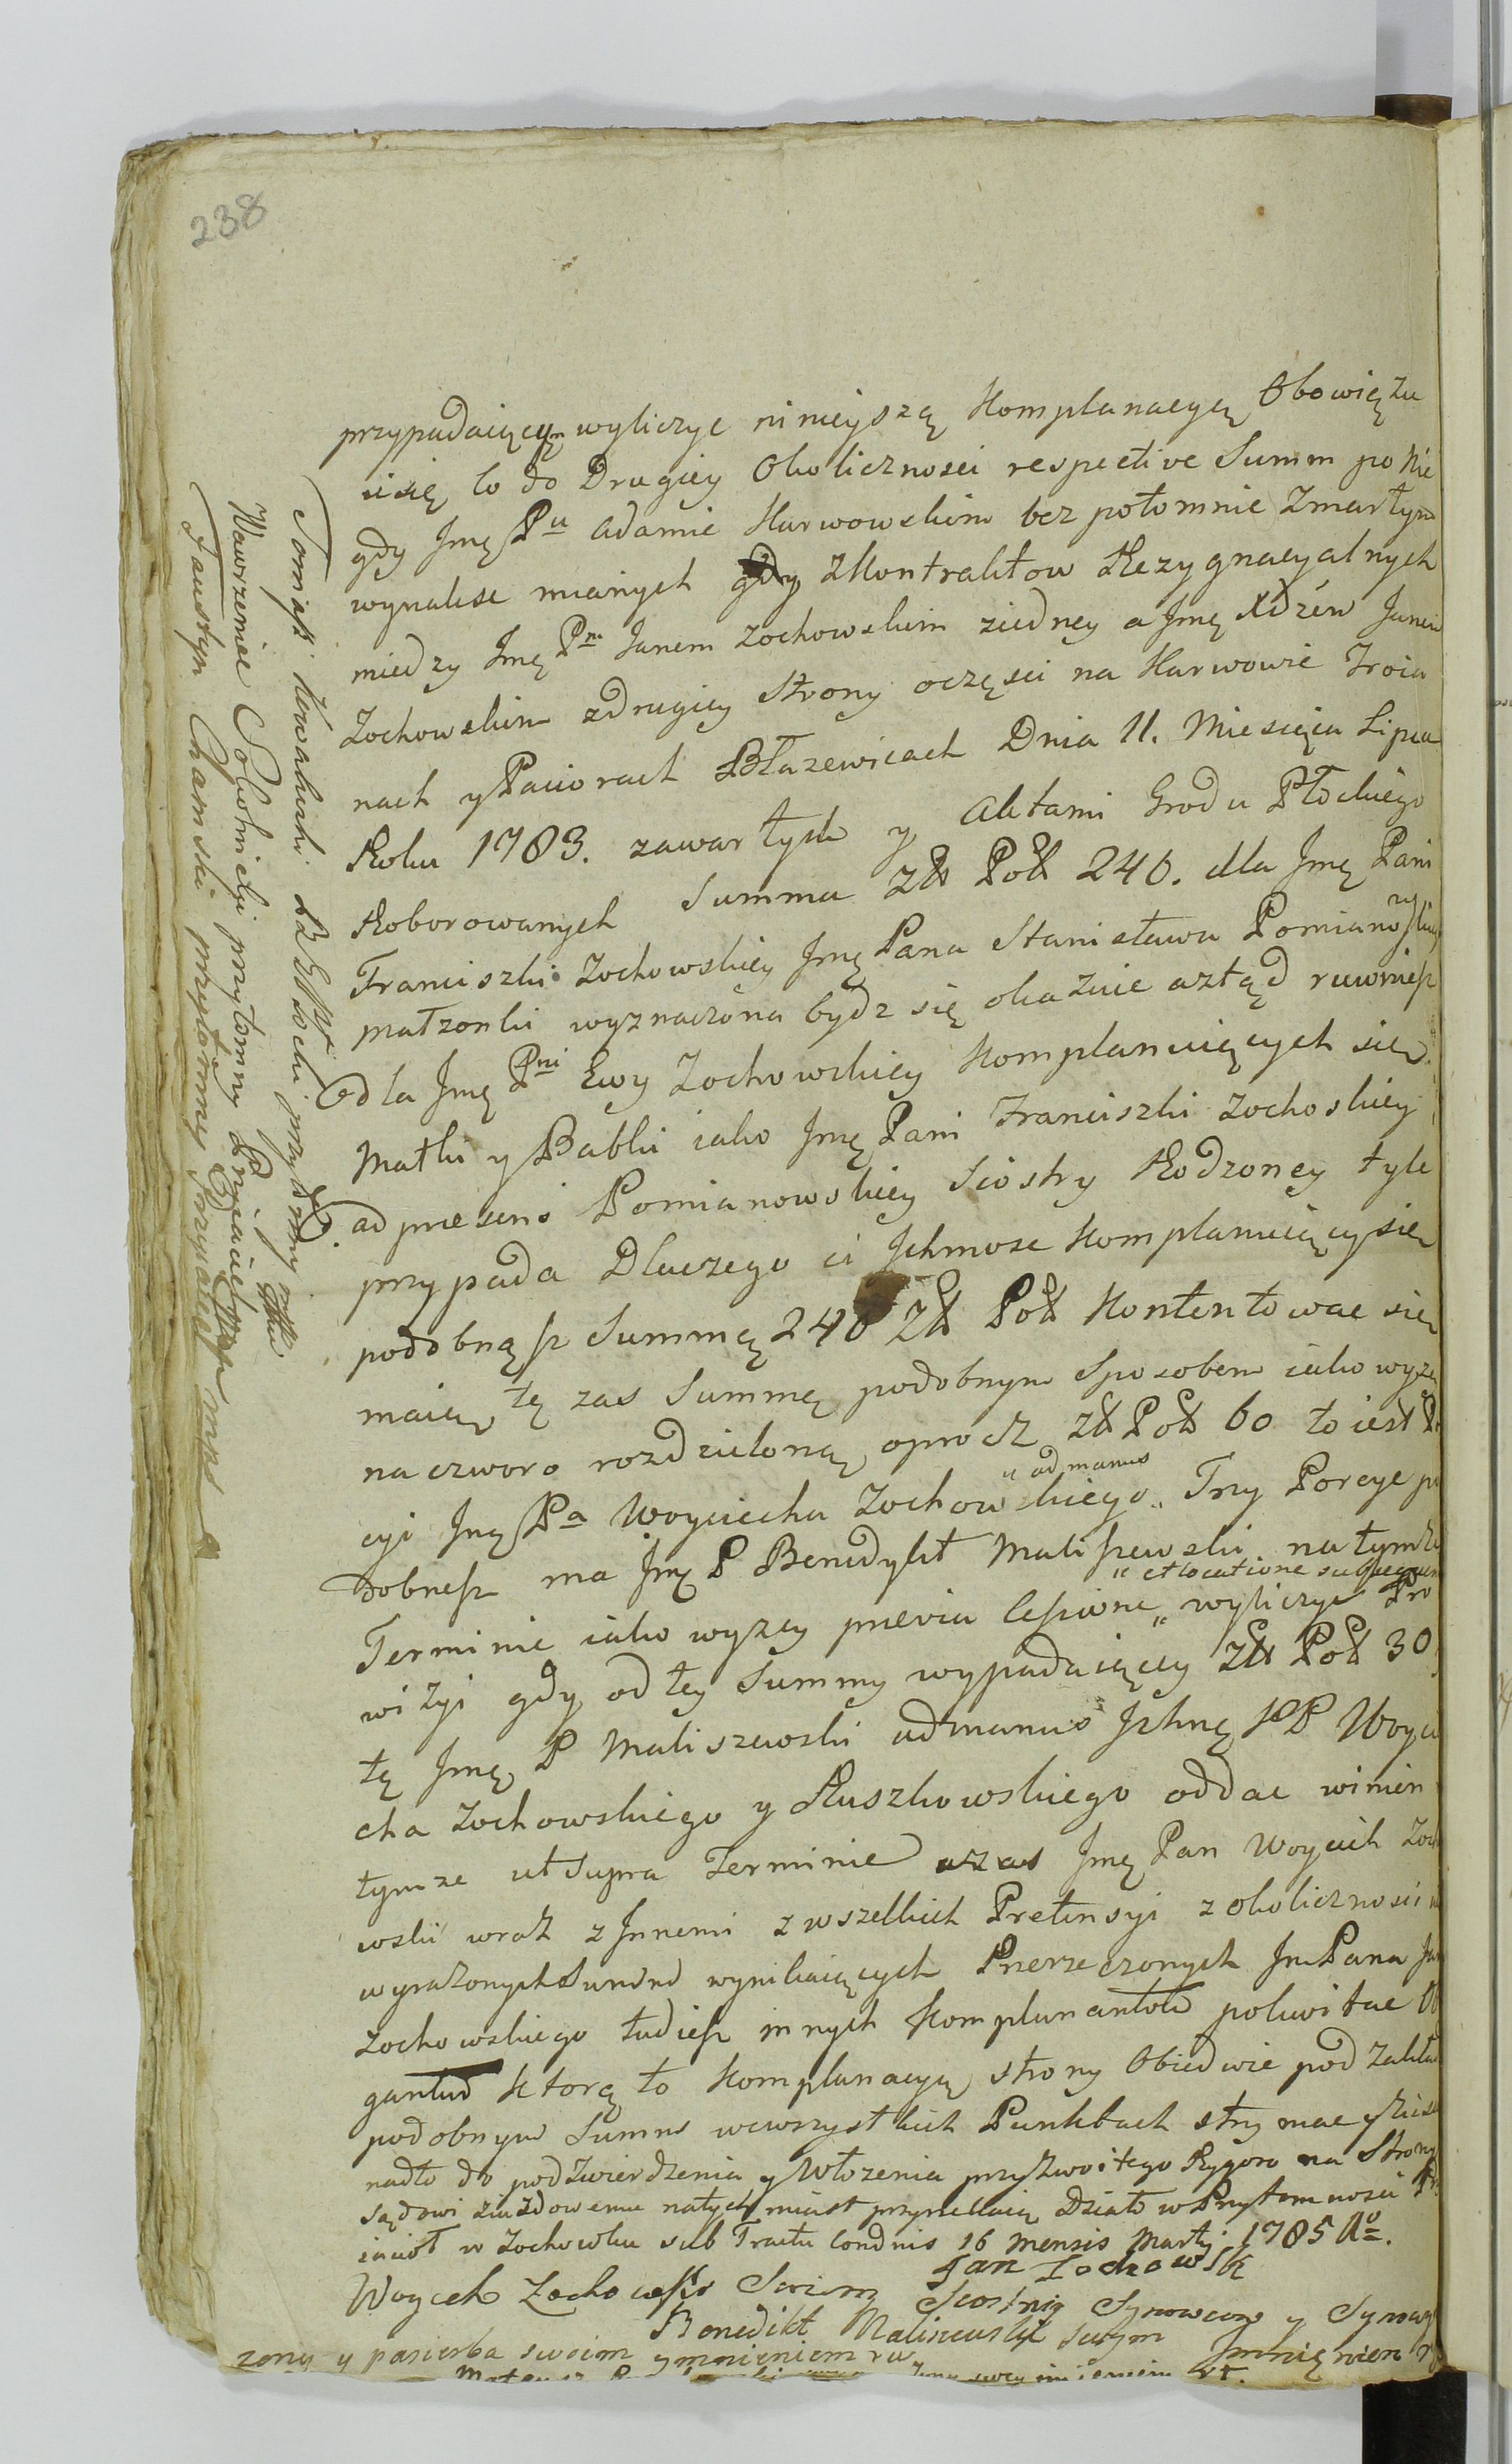 238
przypadaiącym wyliczyc ninieyszą Komplanacyą Obowięzu
ie się Co do Drugiey Okolicznosci respective Summ po Nie
gdy Jmę Pu Adamie Karwowskim bez potomnie Zmarłym
wynalesc mianych z Kontraktow Rezygnacyalnych
miedzy Jmę Pm Janem Zochowskim ziedney a Jmę Xdzem Janem
Zochowskim zdrugiey Strony oczęsci na Karwowie Troia
nach y Paciorach Błazewicach Dnia 11. Miesięca Lipca
Roku 1783. zawartych y Aktami Grodu Płockiego
Roborowanych Summa Zł Poł 240. dla Jmę Pani
Franciszki Zochowskiey Jmę Pana Stanisława Pomianowskiey
małzonki wyznaczona bydz się okazuie aztąd ruwniesz
dla Jmę Pni Ewy Zochowskiey Komplanuiących się
Matki y Babki iako Jmę Pani Franciszki Zochoskiey
ad praesens Pomianowskiey Siostry Rodzoney tyle
przypada Dlaczego ci Jchmosc Komplanuiący się
podobnąsz Summą 240 Zł Poł Kontentowac się
maią, tę zas Summę podobnym Sposobem iako wyzey
na czworo rozdzieloną oprocz Zł Poł 60 to iest
cyi Jmę Pa Woyciecha Zochowskiego " ad manus " Trzy Porcye po
dobnesz ma Jmę P Benedykt Maliszewski na tymze
Terminie iako wyzey praevia Cessione " et locatione " wyliczyc Pro
wizyi gdy od tey Summy wypadaiącey Zł Poł 30
tę Jmę P Maliszewski ad manus Jchmę PP Woycie
cha Zochowskiego y Ruszkowskiego oddac winien
tymze ut supra Terminie a zas Jmę Pan Woyciech Zocho
wski wraz z Jnnemi z wszelkich Pretensyi z okolicznosci
wyrazonych Summ wynikaiących Przerzeczonych Jm Pana
Zochowskiego tudiesz innych Komplanantow pokwitac
Ktorą to Komplanacyą strony Obiedwie pod Zakładem
podobnym Summ wewszystkich Punktach strzymac
nadto do podzwierdzenia y Włozenia przyzwoitego Rygoru na Strony
Sądowi ziazdowemu natychmiast przynekaią Działo w Przytomnosci
iaciół w Zochowku sub Tractu Condnis 16 Mensis Marty 1785 Ao.
Jan Zochowski
Woycech Zochowski Swiem Siostrią Synowcow y Synowy
Benedikt Maliszewski Swym Jmnięniem
zony y pasierba swoim ymnieniem
Tomasz przytomny
Wawrzeniec przytomny Przyaciel
Faustyn Chamski przytomny Przyaciel mps